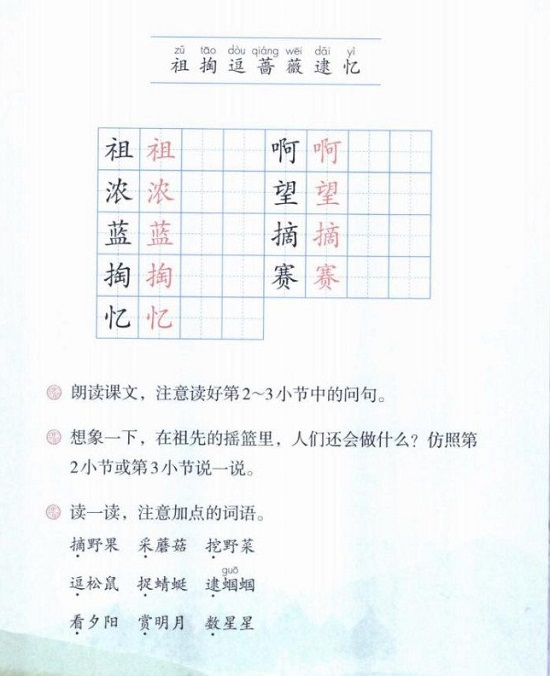 zǔ tāo dòu qiáng wēi dǎi yì
祖 掏 逗 蔷 薇 逮 忆
祖 祖 啊 啊
浓 浓 望 望
蓝 蓝 摘 摘
掏 掏 赛 赛
忆 忆
朗读课文，注意读好第2～3小节中的问句。
想象一下，在祖先的摇篮里，人们还会做什么？仿照第
2小节或第3小节说一说。
读一读，注意加点的词语。
摘野果 采蘑菇 挖野菜
guō
逗松鼠 捉蜻蜓 逮蝈蝈
看夕阳 赏明月 数星星